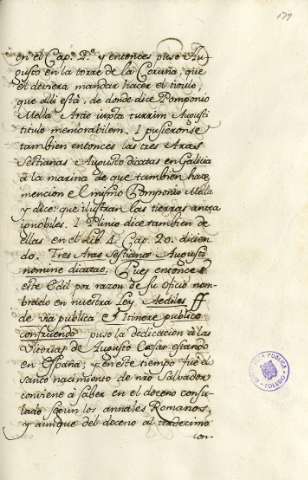 179
en el Cap.º 2.º y entonces puso Au-
gusto en la torre de la Coruña, que
el debiera mandar hacer el titulo,
que alli está, de donde dice Pomponio
Mella Artio iuxta turrim Augusti
titulo memorabilem. I pusieronse
tambien entonces las tres Aras
Sestianas a Augusto dicatas en Galicia
à la marina de que tambien hace
mencion el mismo Pomponio Mella
y dice: que ilustran las tierras antes
ignobiles. I Plinio dice tambien de
ellas en el Lib. 4. Cap. 20. dicien-
do. Tres Aras Sestianas Augusto
nomine dicatas. Pues entonces
este Edil por razon de su oficio nom-
brado en nuestra Ley, Aediles ff
de via publica et Itinere publico
construendo puso la dedicacion à las
Vitorias de Augusto Cesar estando
en España: y en este tiempo fue el
santo nacimiento de nro Salvador
conviene à saber en el deceno consu-
lado segun los annales Romanos,
y aunque del deceno al tredecimo
con-